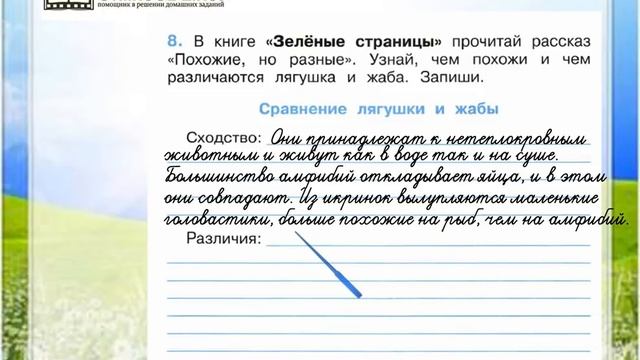 помощник в решении домашних заданий
8. В книге «Зелёные страницы» прочитай рассказ
«Похожие, но разные». Узнай, чем похожи и чем
различаются лягушка и жаба. Запиши.
Сравнение лягушки и жабы
Сходство: Они принадлежат к нетеплокровным
животным и живут как в воде так и на суше.
Большинство амфибий откладывает яйца, и в этом
они совпадают. Из икринок вылупляются маленькие
головастики, больше похожие на рыб, чем на амфибий.
Различия: